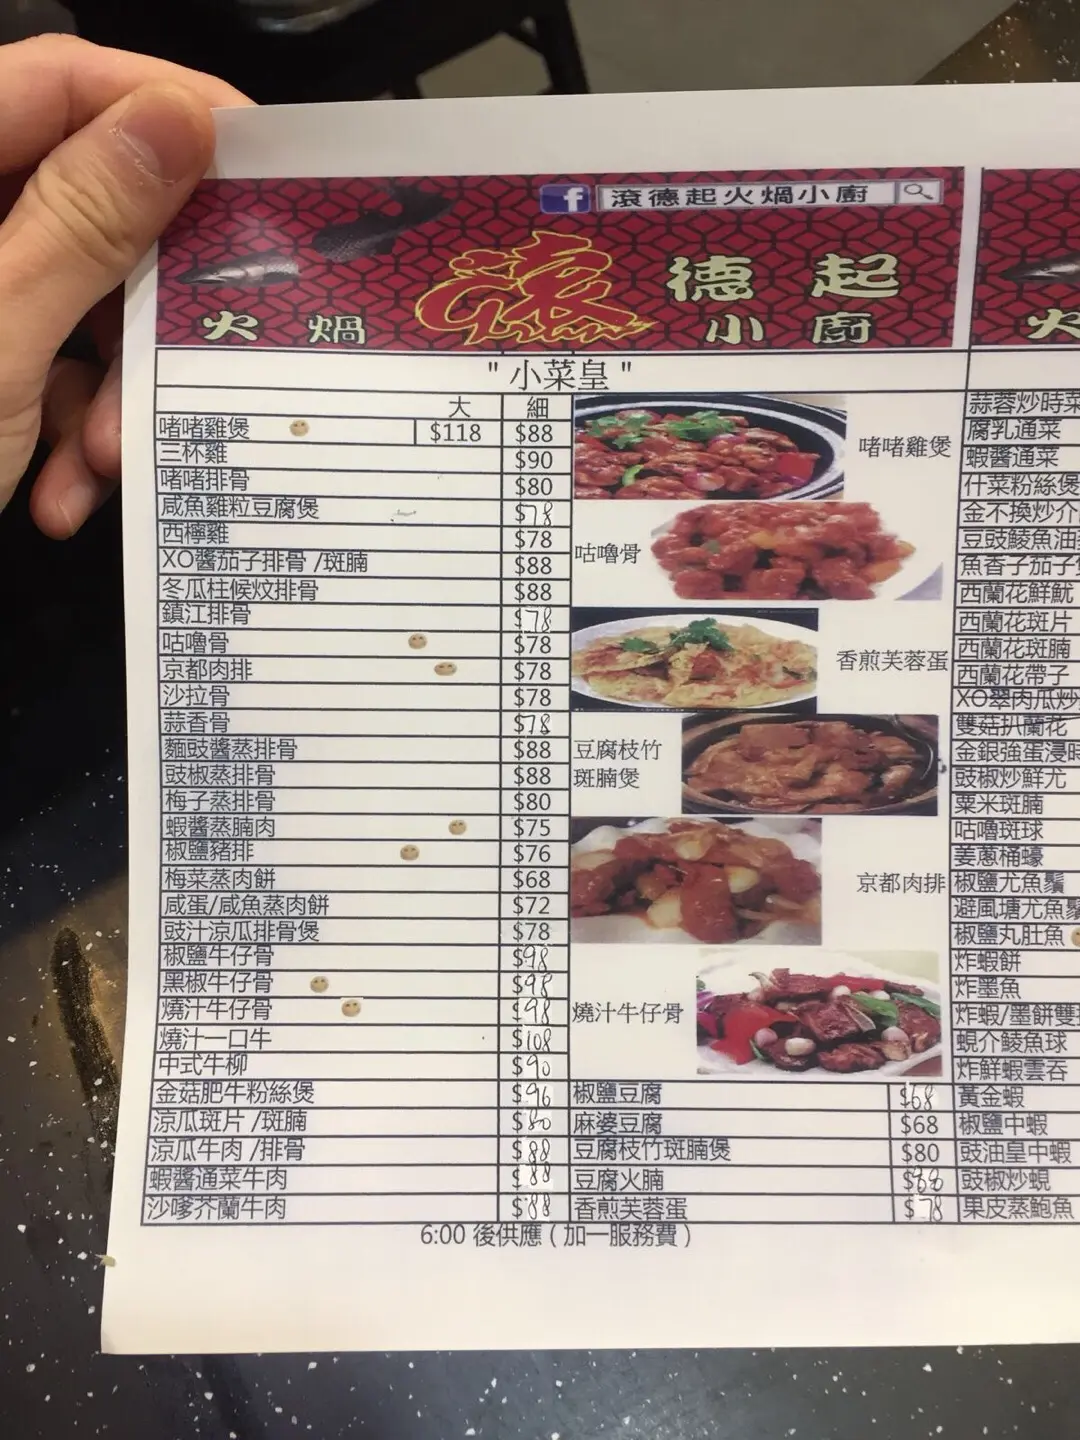 滾德起火焗小廚
滾 德起
火焗 小廚
"小菜皇"
大 細
啫啫雞煲 $118 $88
三杯雞 $90
啫啫排骨 $80
咸魚雞粒豆腐煲 $78
西檸雞 $78
XO醬茄子排骨 /斑腩 $88
冬瓜柱候炆排骨 $88
鎮江排骨 $78
咕嚕骨 $78
京都肉排 $78
沙拉骨 $78
蒜香骨 $78
麵豉醬蒸排骨 $88
豉椒蒸排骨 $88
梅子蒸排骨 $80
蝦醬蒸腩肉 $75
椒鹽豬排 $76
梅菜蒸肉餅 $68
咸蛋/咸魚蒸肉餅 $72
豉汁涼瓜排骨煲 $78
椒鹽牛仔骨 $98
黑椒牛仔骨 $98
燒汁牛仔骨 $98
燒汁一口牛 $108
中式牛柳 $90
金菇肥牛粉絲煲 $96
涼瓜斑片 /斑腩 $80
涼瓜牛肉 /排骨 $88
蝦醬通菜牛肉 $88
沙嗲芥蘭牛肉 $88
啫啫雞煲
咕嚕骨
香煎芙蓉蛋
豆腐枝竹
斑腩煲
京都肉排
燒汁牛仔骨
椒鹽豆腐 $68
麻婆豆腐 $68
豆腐枝竹斑腩煲 $80
豆腐火腩
香煎芙蓉蛋 $78
火
蒜蓉炒時菜
腐乳通菜
蝦醬通菜
什菜粉絲煲
金不換炒介
豆豉鯪魚油
魚香子茄子
西蘭花鮮魷
西蘭花斑片
西蘭花斑腩
西蘭花帶子
XO翠肉瓜炒
雙菇扒蘭花
金銀強蛋浸時
豉椒炒鮮尤
粟米斑腩
咕嚕斑球
姜蔥桶蠔
椒鹽尤魚鬚
避風塘尤魚鬚
椒鹽丸肚魚
炸蝦餅
炸墨魚
炸蝦/墨餅雙
蜆介鯪魚球
炸鮮蝦雲吞
黃金蝦
椒鹽中蝦
豉油皇中蝦
豉椒炒蜆
果皮蒸鮑魚
6:00 後供應 ( 加一服務費 )